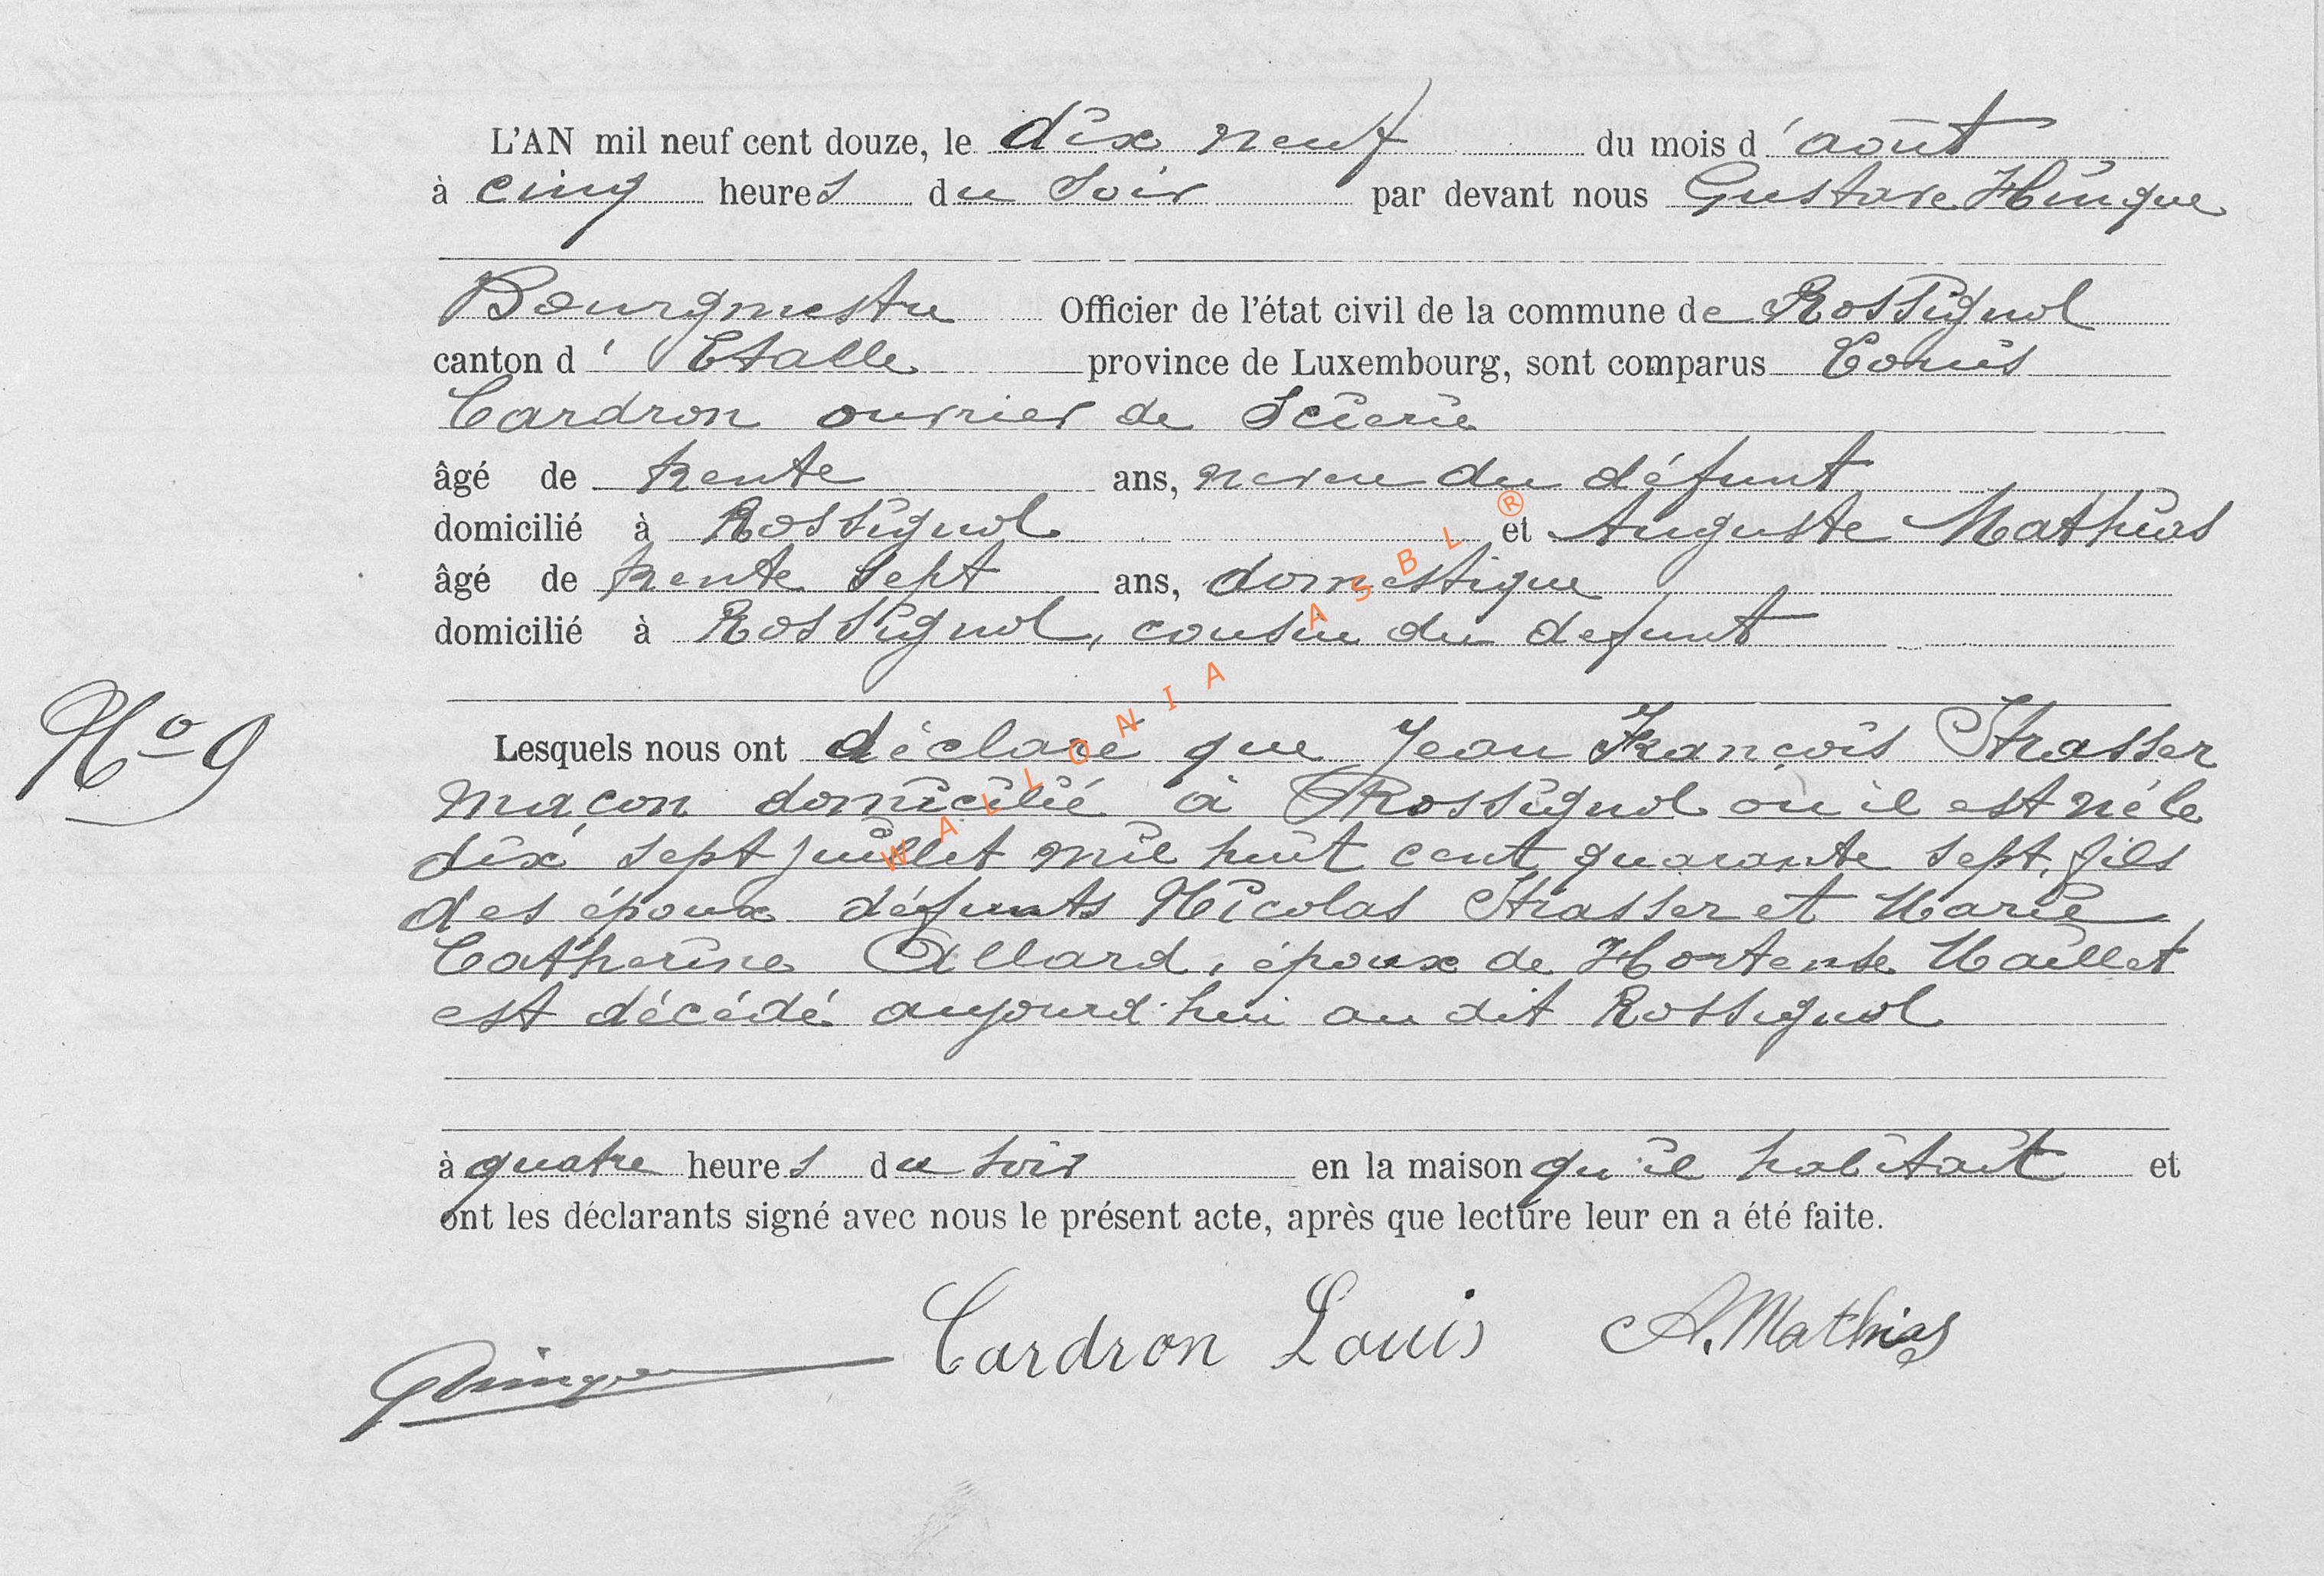 L'AN mil neuf cent douze, le dix neuf du mois d'août
à cinq heures du soir par devant nous Gustave Hinque
Bourgmestre Officier de l'état civil de la commune de Rossignol
canton d'Etalle province de Luxembourg, sont comparus Louis
Cardron ouvrier de scierie
âgé de trente ans, neveu du défunt
domicilié à Rossignol et Auguste Mathias
âgé de trente sept ans, domestique
domicilié à Rossignol, cousin du defunt
No 9
Lesquels nous ont déclaré que Jean François Strasser
maçon domicilié à Rossignol où il est né le
dix sept juillet mil huit cent quarante sept, fils
des époux défunts Nicolas Strasser et Marie
Catherine Allard, époux de Hortense Maillet
est décédé aujourd'hui au dit Rossignol
à quatre heures du soir en la maison qu'il habitait et
ont les déclarants signé avec nous le présent acte, après que lecture leur en a été faite.
GHinque Cardron Louis A. Mathias
WALLONIA ASBL ®